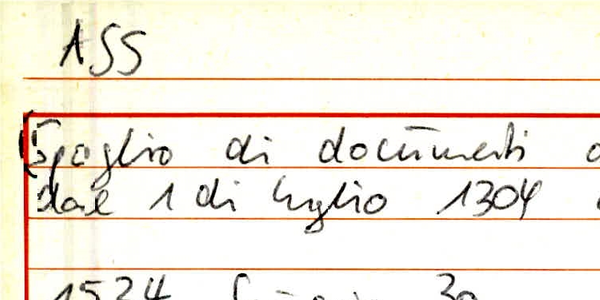 ASS
(Spoglio di documenti
dal 1 di luglio 1304
1524 30